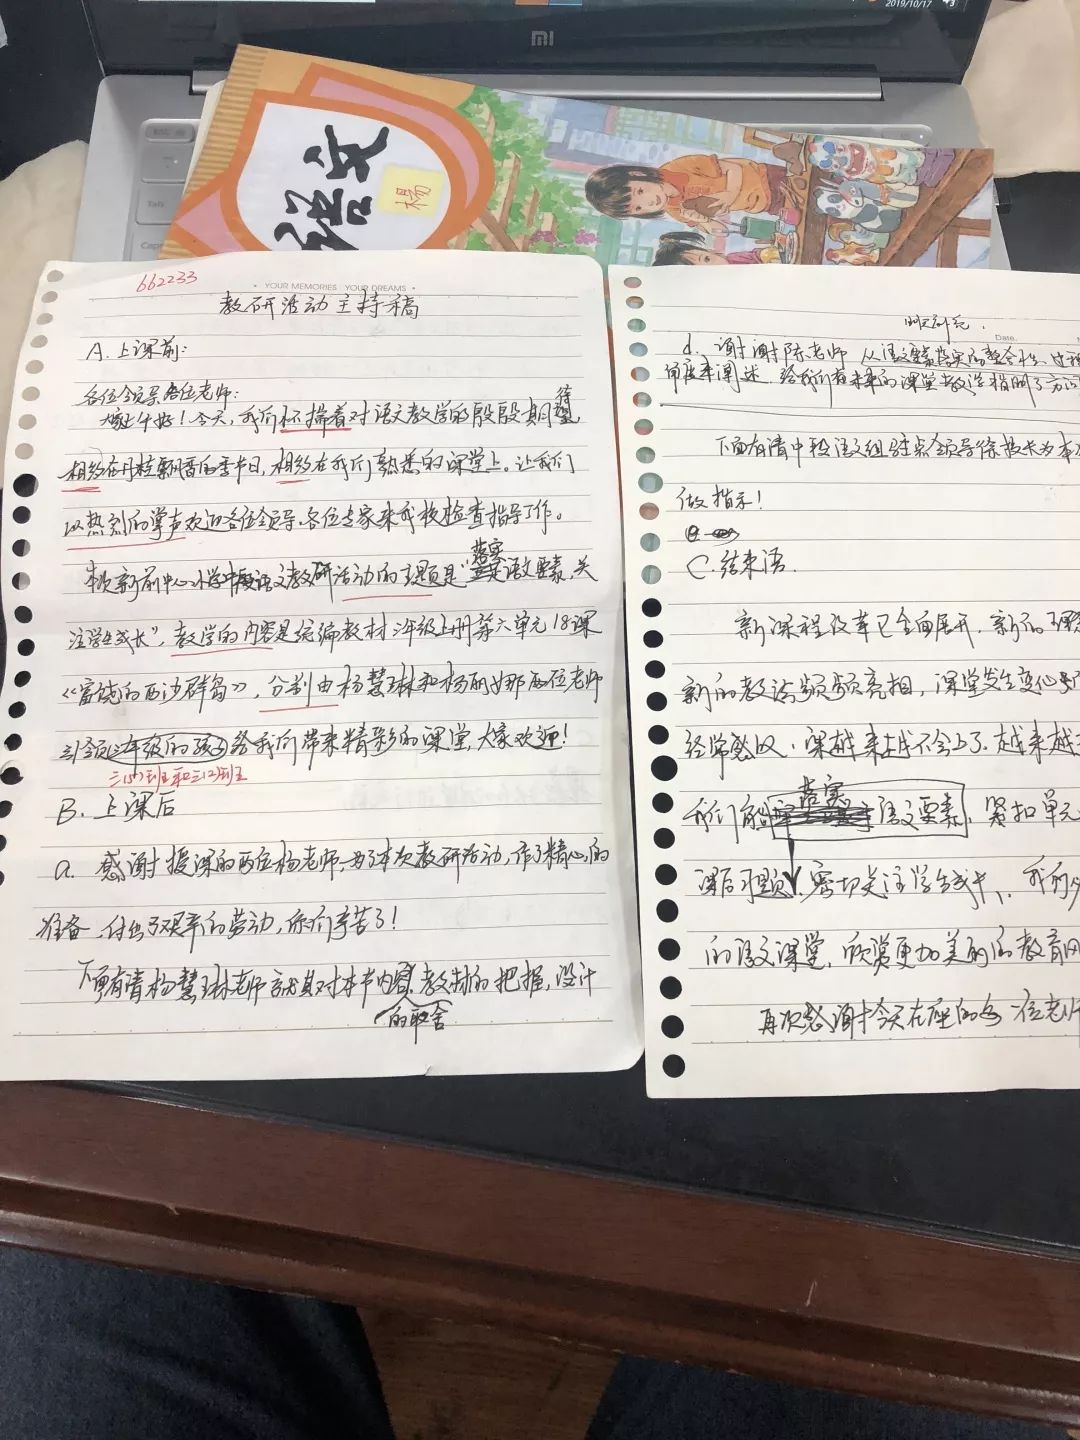 2019/10/17
mi
语文
杨
662233
• YOUR MEMORIES YOUR DREAMS •
教研活动主持稿
A. 上课前:
各位领导各位老师:
大家上午好！今天，我们怀揣着对语文教学的殷殷期望
待
相约在丹桂飘香的季节日，相约在我们熟悉的课堂上。让我们
以热烈的掌声欢迎各位领导、各位专家来我校检查指导工作。
落实
本次新前中心小学中段语文教研活动的主题是“语文要素，关
注学生成长”，教学的内容是统编教材三年级上册第六单元18课
《富饶的西沙群岛》，分别由杨慧琳和杨丽娜两位老师
年级的孩子给我们带来精彩的课堂，大家欢迎！
B. 上课后
a. 感谢授课的两位杨老师，为了本次教研活动，作了精心的
准备，付出了艰辛的劳动，你们辛苦了！
下面有请杨慧琳老师就其对本节内容教材的把握，设计
的取舍
Date.
d. 谢谢陈老师 从语文要素落实的整合性、
阐述 给我们有未来的课堂教学指明了方
下面有请中段语文组驻点领导徐校长为本
做指示！
C. 结束语.
新课程改革已全面展开，新的
新的教法频频亮相，课堂发生变化
经常感叹，课越来越不会上了，越来越
落实
我们 语文要素，紧扣单元
课后习题，密切关注学生成长，我们
的语文课堂，欣赏更加美丽的教育风
再次感谢今天在座的各位老师